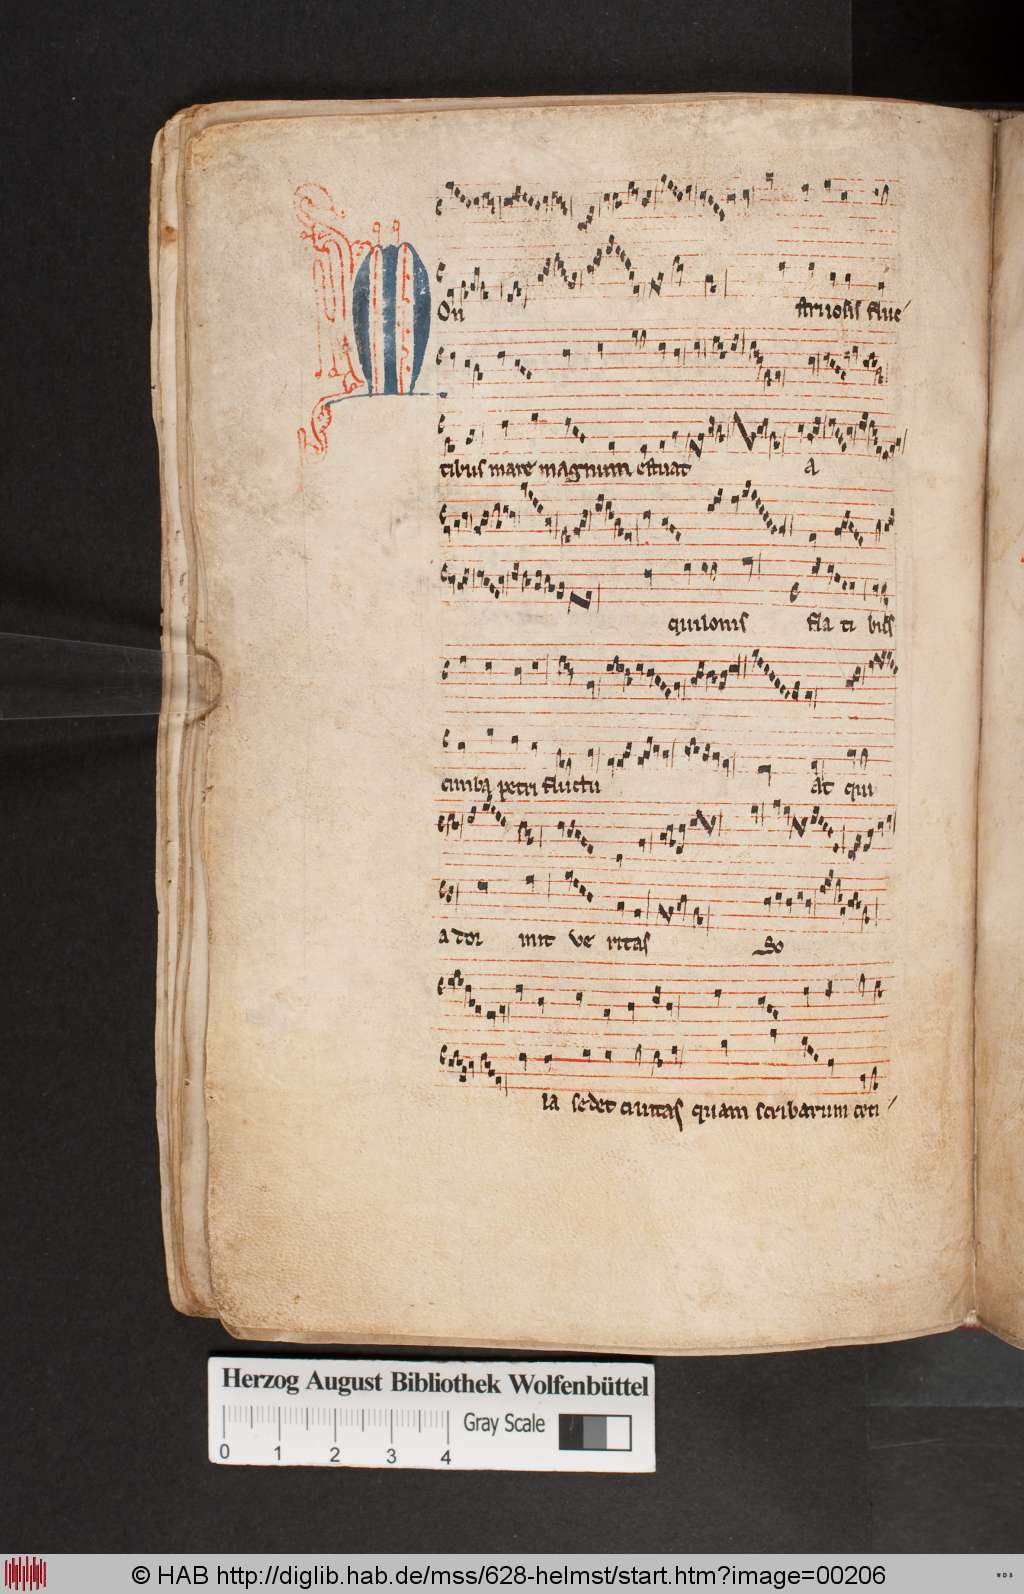 MOn struosis flue
tibus mare magnum estuat a
quilonis fla ti bus
cimba petri fluctu at qui
a dor mit ve ritas So
la sedet civitas quam scribarum ceci
Herzog August Bibliothek Wolfenbüttel
Gray Scale
0 1 2 3 4
© HAB http://diglib.hab.de/mss/628-helmst/start.htm?image=00206